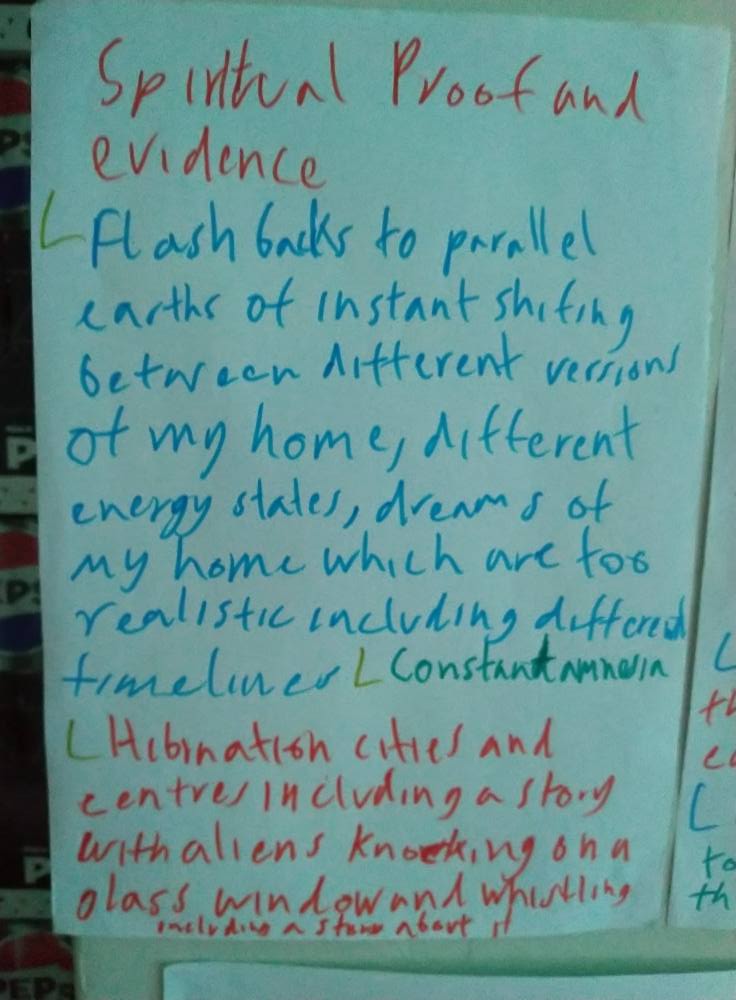 Spiritual Proof and
evidence
Flash backs to parallel
earths of instant shifing
between different versions
of my home, different
energy states, dreams of
my home which are too
realistic including different
timelines Constant amnesia
Hibination cities and
centres including a story
with aliens knocking on a
glass window and whistling
including a story about it